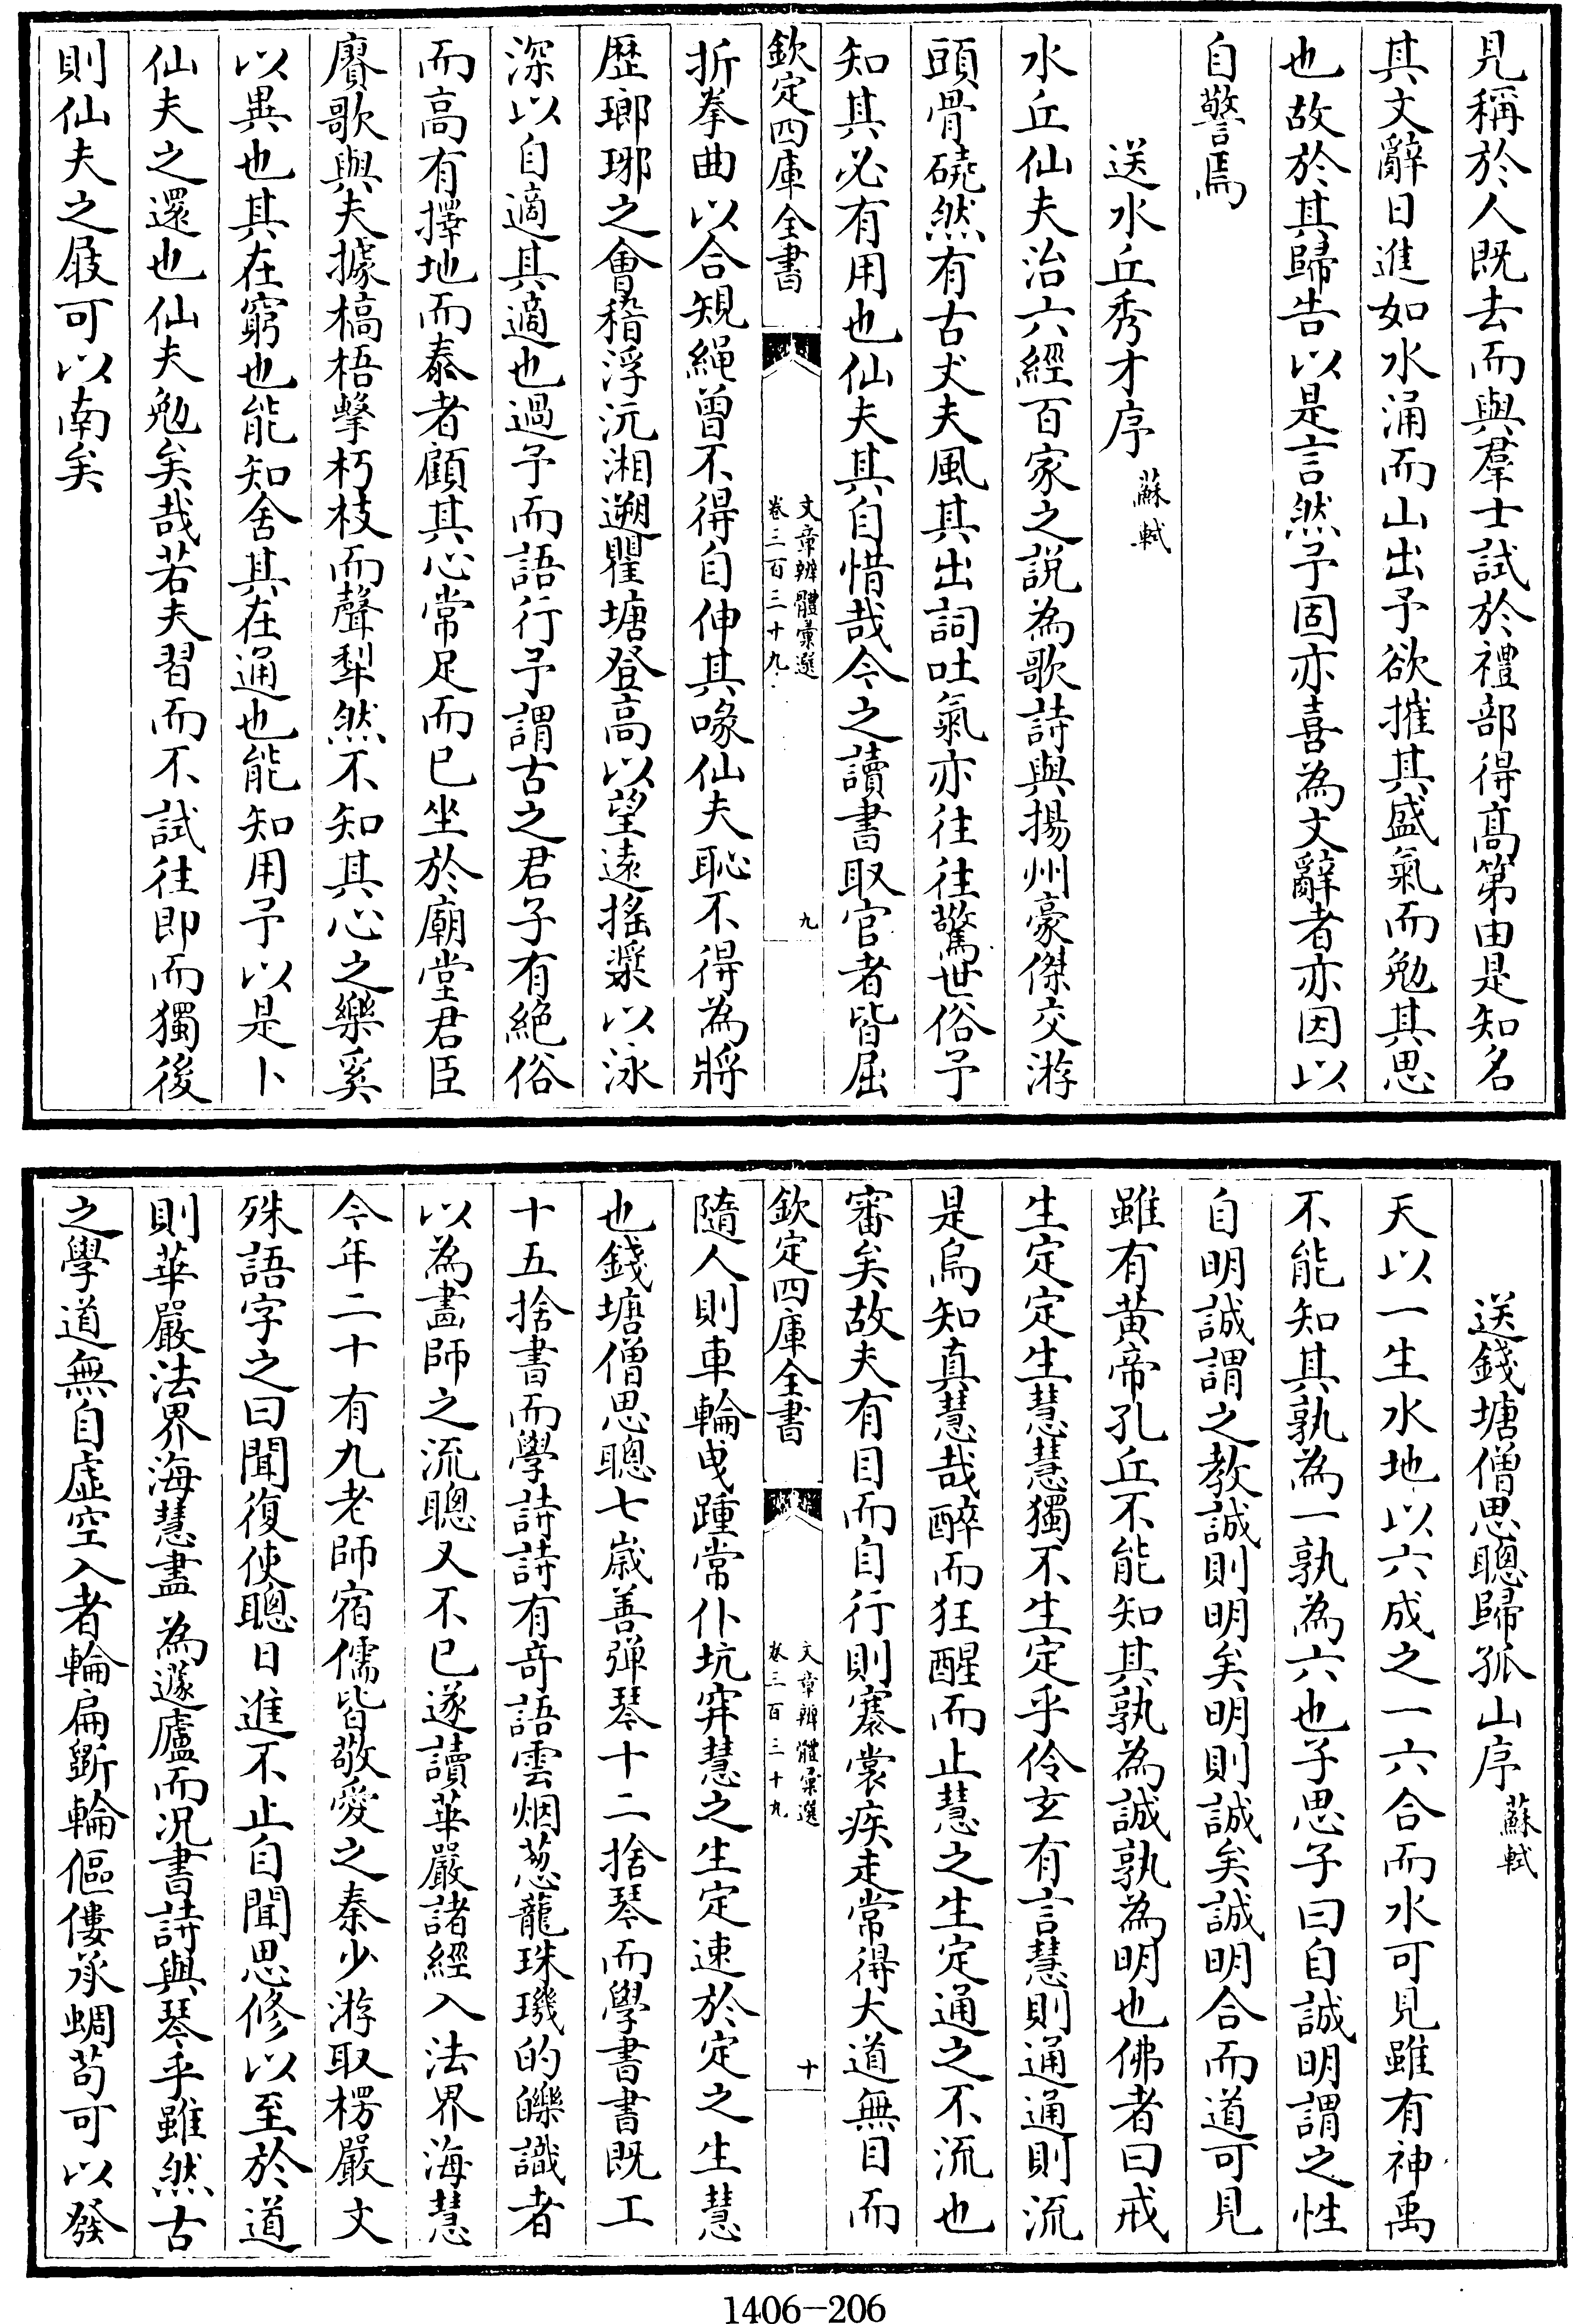 見稱於人既去而與羣士試於禮部得髙第由是知名
其文辭日進如水涌而山出予欲摧其盛氣而勉其思
也故於其歸告以是言然予固亦喜為文辭者亦因以
自警焉
送水丘秀才序 蘇軾
水丘仙夫治六經百家之說為歌詩與揚州豪傑交游
頭骨磽然有古丈夫風其出詞吐氣亦往往驚世俗予
知其必有用也仙夫其自惜哉今之讀書取官者皆屈
欽定四庫全書
文章辨體彙選
卷三百三十九
九
折拳曲以合規繩曾不得自伸其喙仙夫恥不得為將
歴瑯琊之會稽浮沅湘遡瞿塘登高以望遠搖槳以泳
深以自適其適也過予而語行予謂古之君子有絶俗
而高有擇地而泰者顧其心常足而已坐於廟堂君臣
賡歌與夫據槁梧擊朽枝而聲犁然不知其心之樂奚
以異也其在窮也能知舍其在通也能知用予以是卜
仙夫之還也仙夫勉矣哉若夫習而不試往即而獨後
則仙夫之屐可以南矣
送錢塘僧思聰歸孤山序 蘇軾
天以一生水地以六成之一六合而水可見雖有神禹
不能知其孰為一孰為六也子思子曰自誠明謂之性
自明誠謂之教誠則明矣明則誠矣誠明合而道可見
雖有黄帝孔丘不能知其孰為誠孰為明也佛者曰戒
生定定生慧慧獨不生定乎伶玄有言慧則通通則流
是烏知真慧哉醉而狂醒而止慧之生定通之不流也
審矣故夫有目而自行則褰裳疾走常得大道無目而
欽定四庫全書
文章辨體彙選
卷三百三十九
十
隨人則車輪曵踵常仆坑穽慧之生定速於定之生慧
也錢塘僧思聰七嵗善彈琴十二捨琴而學書書既工
十五捨書而學詩詩有奇語雲烟葱蘢珠璣的皪識者
以為畫師之流聰又不已遂讀華嚴諸經入法界海慧
今年二十有九老師宿儒皆敬愛之秦少游取楞嚴文
殊語字之曰聞復使聰日進不止自聞思修以至於道
則華嚴法界海慧盡為蘧廬而况書詩與琴乎雖然古
之學道無自虛空入者輪扁斲輪傴僂承蜩苟可以發
1406-206